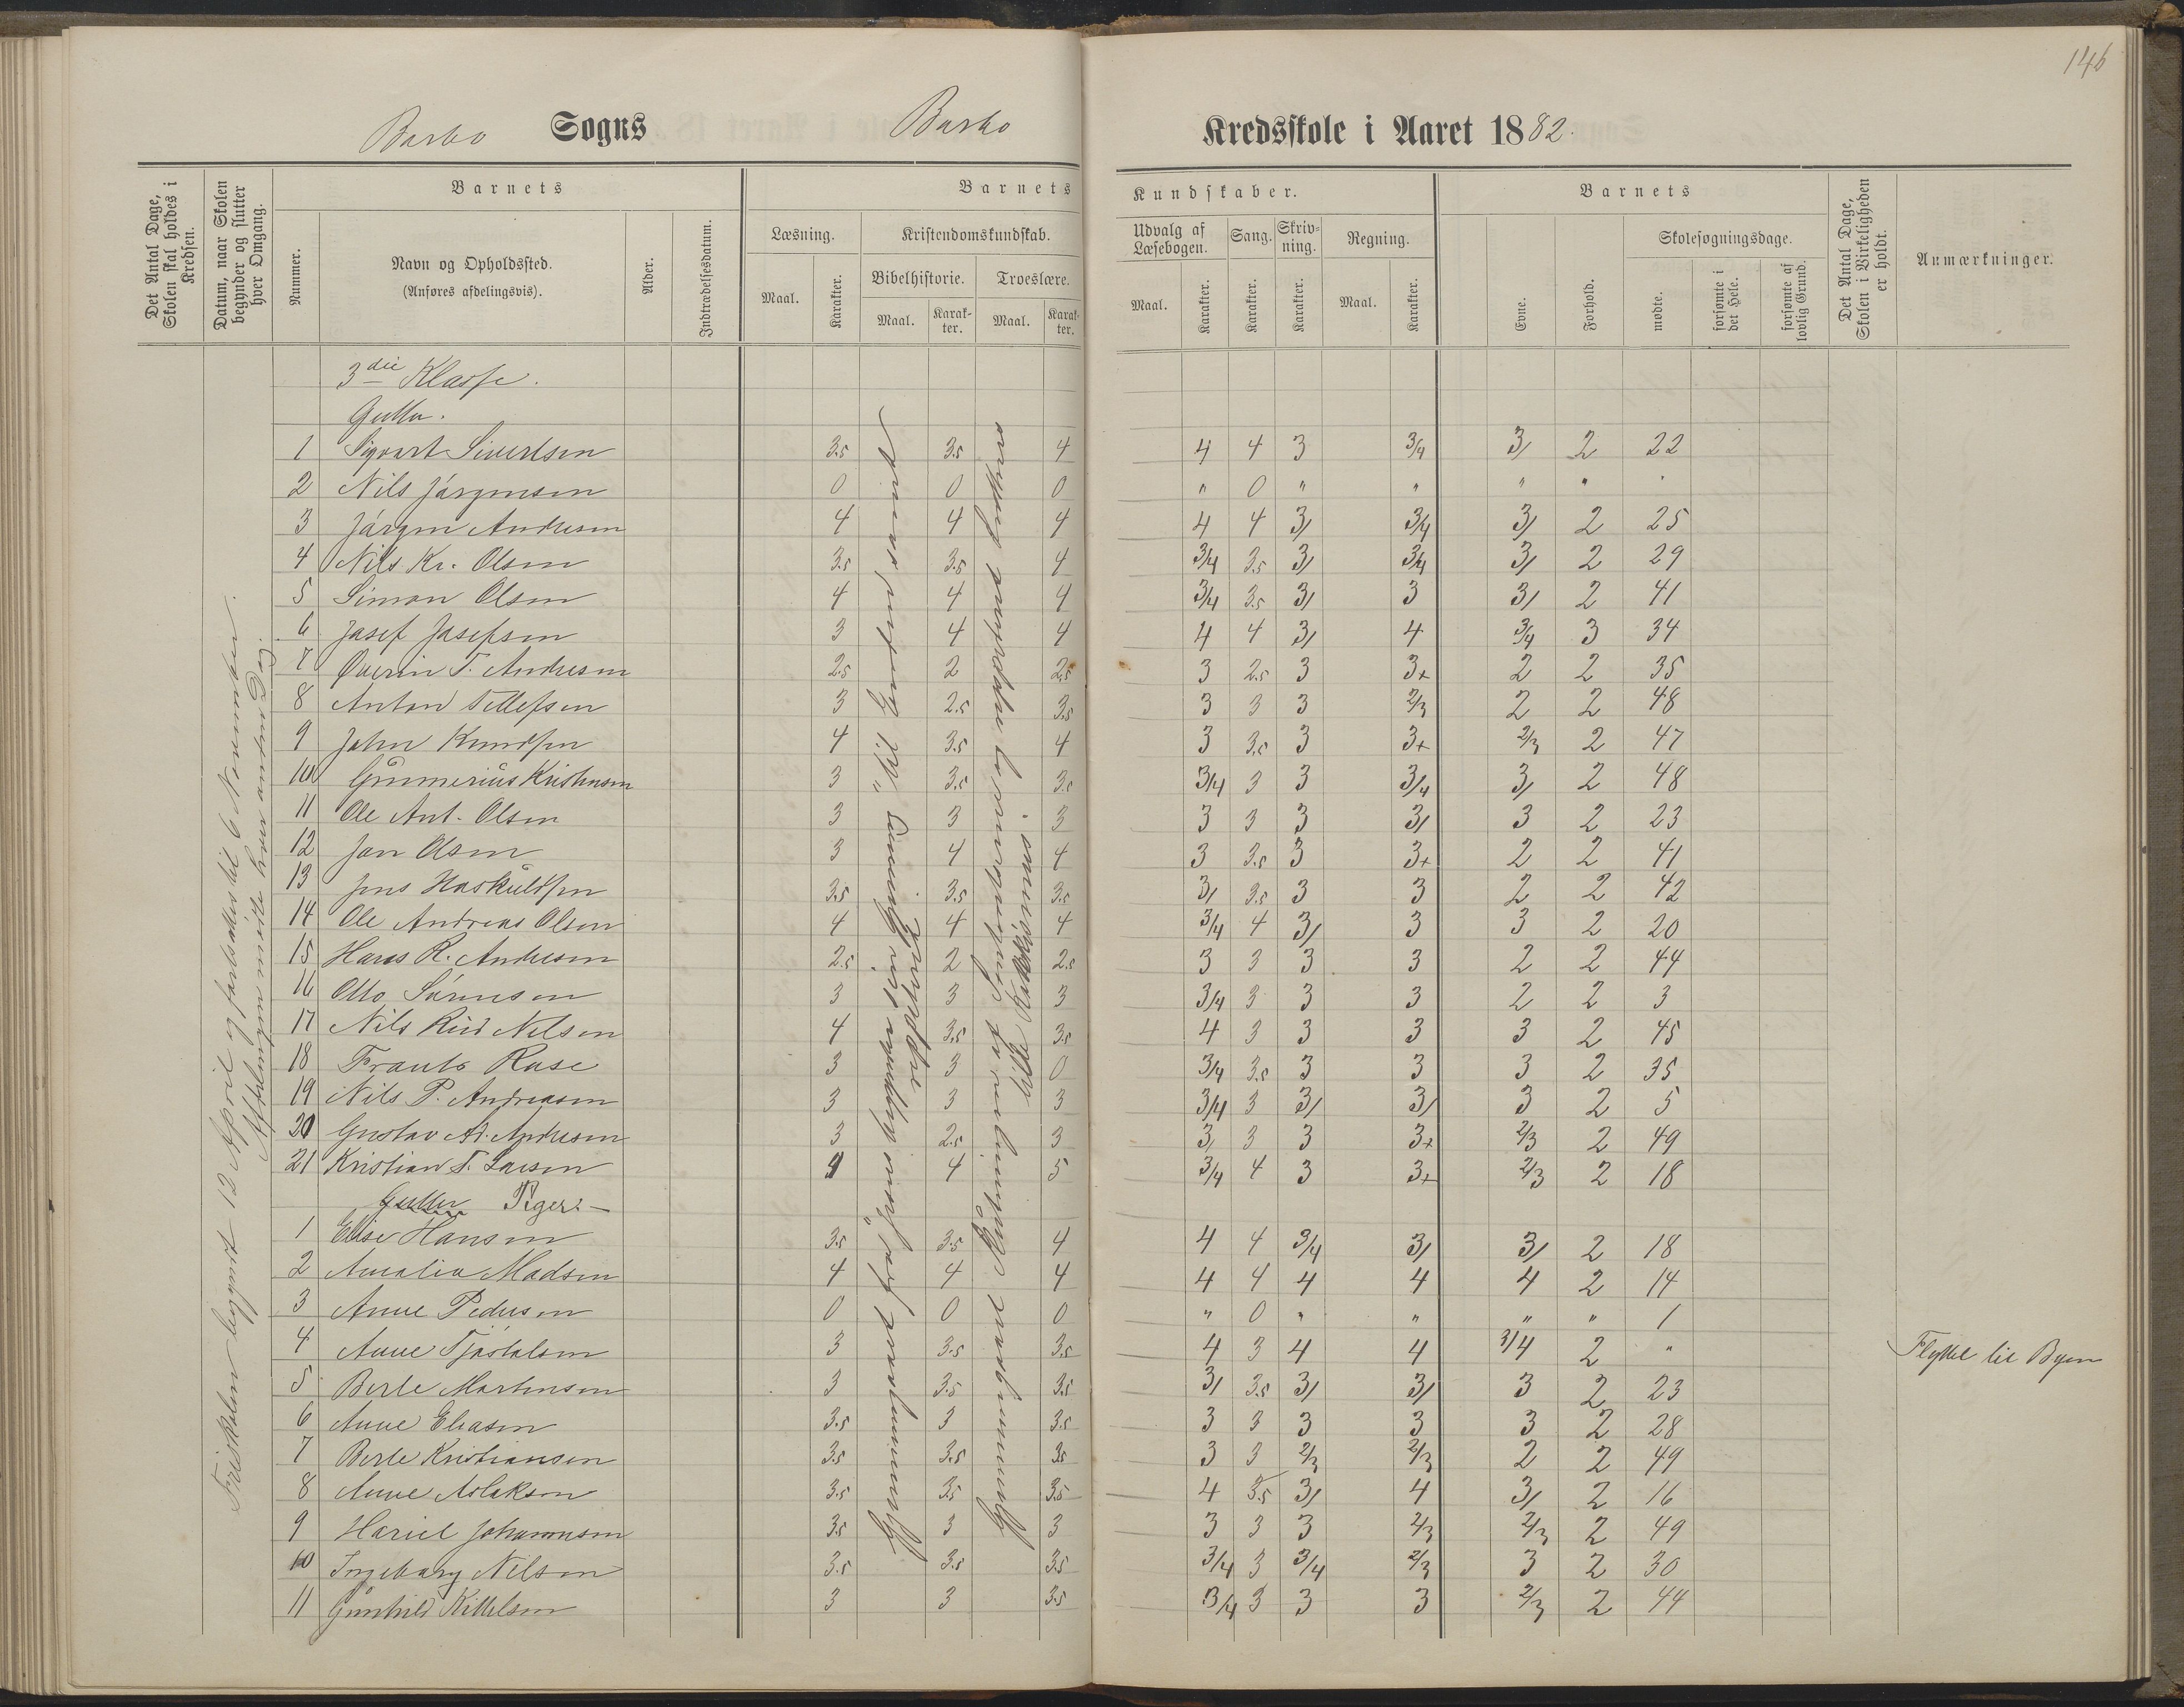 146
Barbo Sogns Barbo Kredsskole i Aaret 1882.
Det Antal Dage, Skolen skal holdes i Kredsen.
Datum, naar Skolen begynder og slutter hver Omgang.
Barnets
Nummer.
Navn og Opholdssted.
(Anføres afdelingsvis).
Alder.
Indtrædelsesdatum.
Barnets Kundskaber.
Læsning. Kristendomskundskab. Udvalg af Læsebogen. Sang. Skrivning. Regning.
Bibelhistorie. Troeslære.
Maal. Karakter. Maal. Karakter. Maal. Karakter. Maal. Karakter. Karakter. Karakter. Maal. Karakter.
Barnets
Evne. Forhold. Skolesøgningsdage.
mødte. forsømte i det Hele. forsømte af lovlig Grund.
Det Antal Dage, Skolen i Virkeligheden er holdt.
Anmærkninger.
Friskolen begyndt 12 April og fortsattes til 6 November.
Afdelingen mødte hver anden Dag.
3die Klasse.
Gutter.
1 Sigvart Sivertsen 3.5 3.5 4 4 4 3 3/4 3/ 2 22
2 Nils Jørgensen 0 0 0 " 0 " " " " "
3 Jørgen Andresen 4 4 4 4 4 3/ 3/4 3/ 2 25
4 Nils Kr. Olsen 3.5 3.5 4 3/4 3.5 3/ 3/4 3/ 2 29
5 Simon Olsen 4 4 4 3/4 3.5 3/ 3 3/ 2 41
6 Josef Josefsen 3 4 4 4 4 3/ 4 3/4 3 34
7 Qverin T. Andresen 2.5 2 2.5 3 2.5 3 3+ 2 2 35
8 Anton Tellefsen 3 2.5 3.5 3 3 3 2/3 2 2 48
9 John Knudsen 4 3.5 4 3 3.5 3 3+ 2/3 2 47
10 Gunnerius Kristensen 3 3.5 3.5 3/4 3 3 3/4 3/ 2 48
11 Ole Ant. Olsen 3 3 3 3 3 3 3/ 3 2 23
12 Jon Olsen 3 4 4 3 3.5 3 3+ 2 2 41
13 Jens Haskuldsen 3.5 3.5 3.5 3/ 3.5 3 3 2 2 42
14 Ole Andreas Olsen 4 4 4 3/4 4 3/ 3 3 2 20
15 Hans R. Andresen 2.5 2 2.5 3 3 3 3 2 2 44
16 Otto Sørensen 3 3 3 3/4 3 3 3 2 2 3
17 Nils Nilsen 4 3.5 3.5 4 3 3 3 3 2 45
18 Frants Rose 3 3 0 3/4 3.5 3 3 3 2 35
19 Nils P. Andreasen 3 3 3 3/4 3 3/ 3/ 3 2 5
20 Gustav Ad. Andresen 3 2.5 3 3/ 3 3 3+ 2/3 2 49
21 Kristian T. Larsen 4 4 5 3/4 4 3 3+ 2/3 2 18
Gutter Piger:
1 Elise Hansen 3.5 3.5 4 4 4 3/4 3/ 3/ 2 18
2 Amalia Madsen 4 4 4 4 4 4 4 4 2 14
3 Anne Pedersen 0 0 0 " 0 " " " " 1
4 Anne Tjøstolsen 3 3.5 3.5 4 3 4 4 3/4 2 " Flyttet til Byen
5 Berte Mortensen 3 3.5 3.5 3/ 3.5 3/ 3/ 3 2 23
6 Anne Eliasen 3.5 3 3.5 3 3 3 3 3 2 28
7 Berte Kristiansen 3.5 3.5 3.5 3 3 2/3 2/3 2 2 49
8 Anne Aslaksen 3.5 3.5 3.5 4 3.5 3/ 4 3/ 2 16
9 3.5 3 3 3 3 3 2/3 2/3 2 49
10 Ingeborg Nilsen 3.5 3.5 3.5 3/4 3 3/4 2/3 3 2 30
11 Gunhild Kittelsen 3 3 3.5 3/4 3 3 3 2/3 2 44